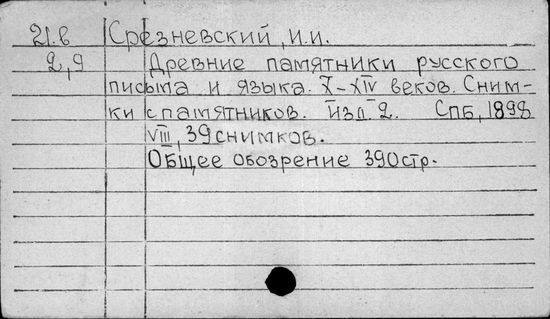 21.в Срезневский, И.И.
2,9 Древние памятники русского
письма и языка. X-XIV веков. Сним-
ки с памятников. Изд. 2. СПБ, 1898
VIII, 39 снимков.
Общее обозрение 390стр.